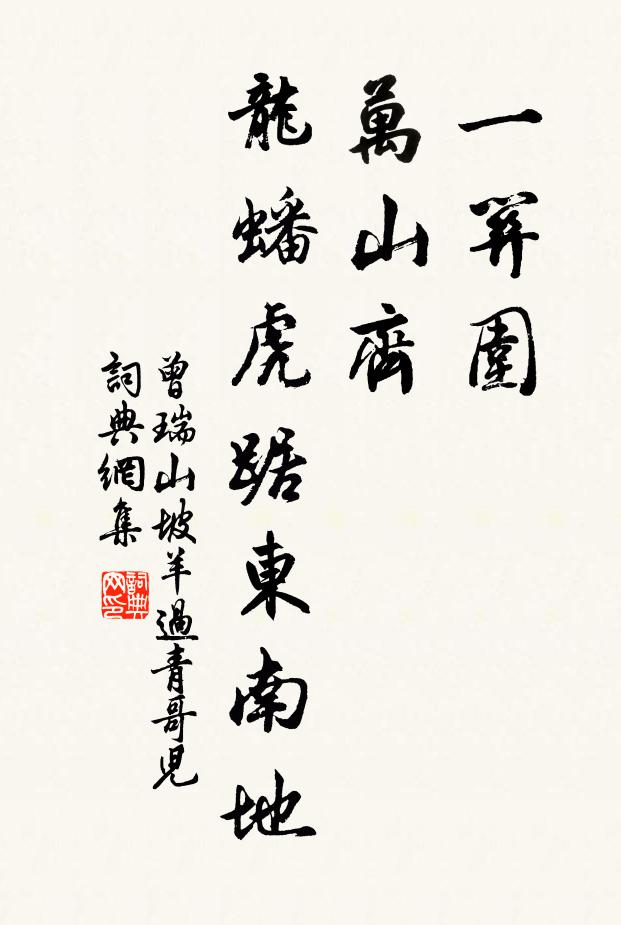 一圍
萬山齊
龍蟠虎踞東南地
曾瑞山坡羊過青哥兒
詞典網集
詞典网印